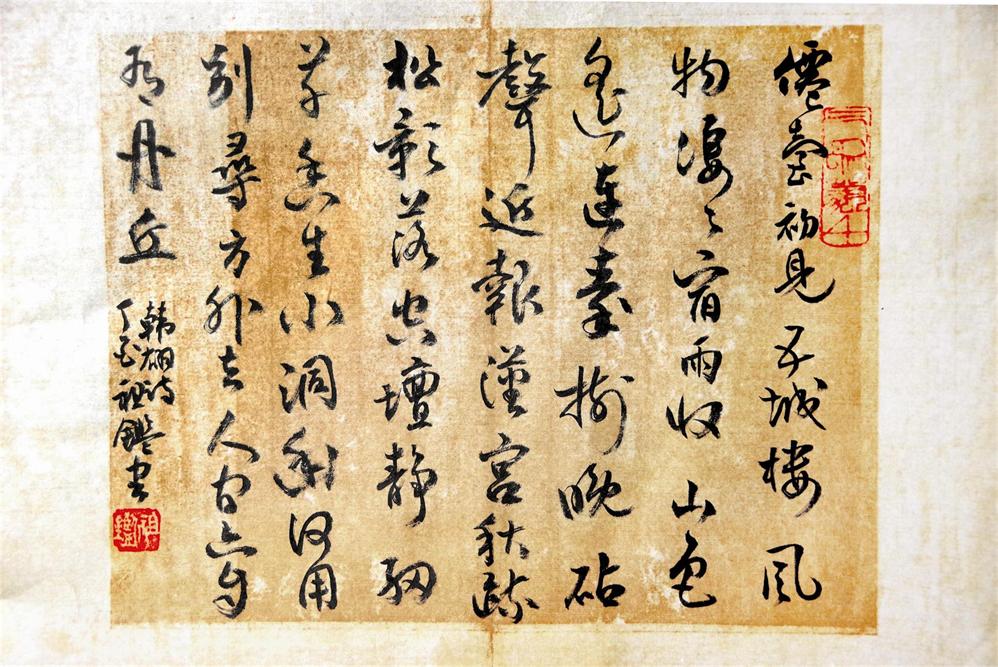 僊臺初見五城楼風
物淒〻宿雨収山色
遙連秦樹晚砧
聲近報漢宮秋疏
松影落空壇靜細
草香生小洞幽何用
別尋方外去人间亦自
有丹丘
韩翃诗
丁祖鑑书
祖鑑